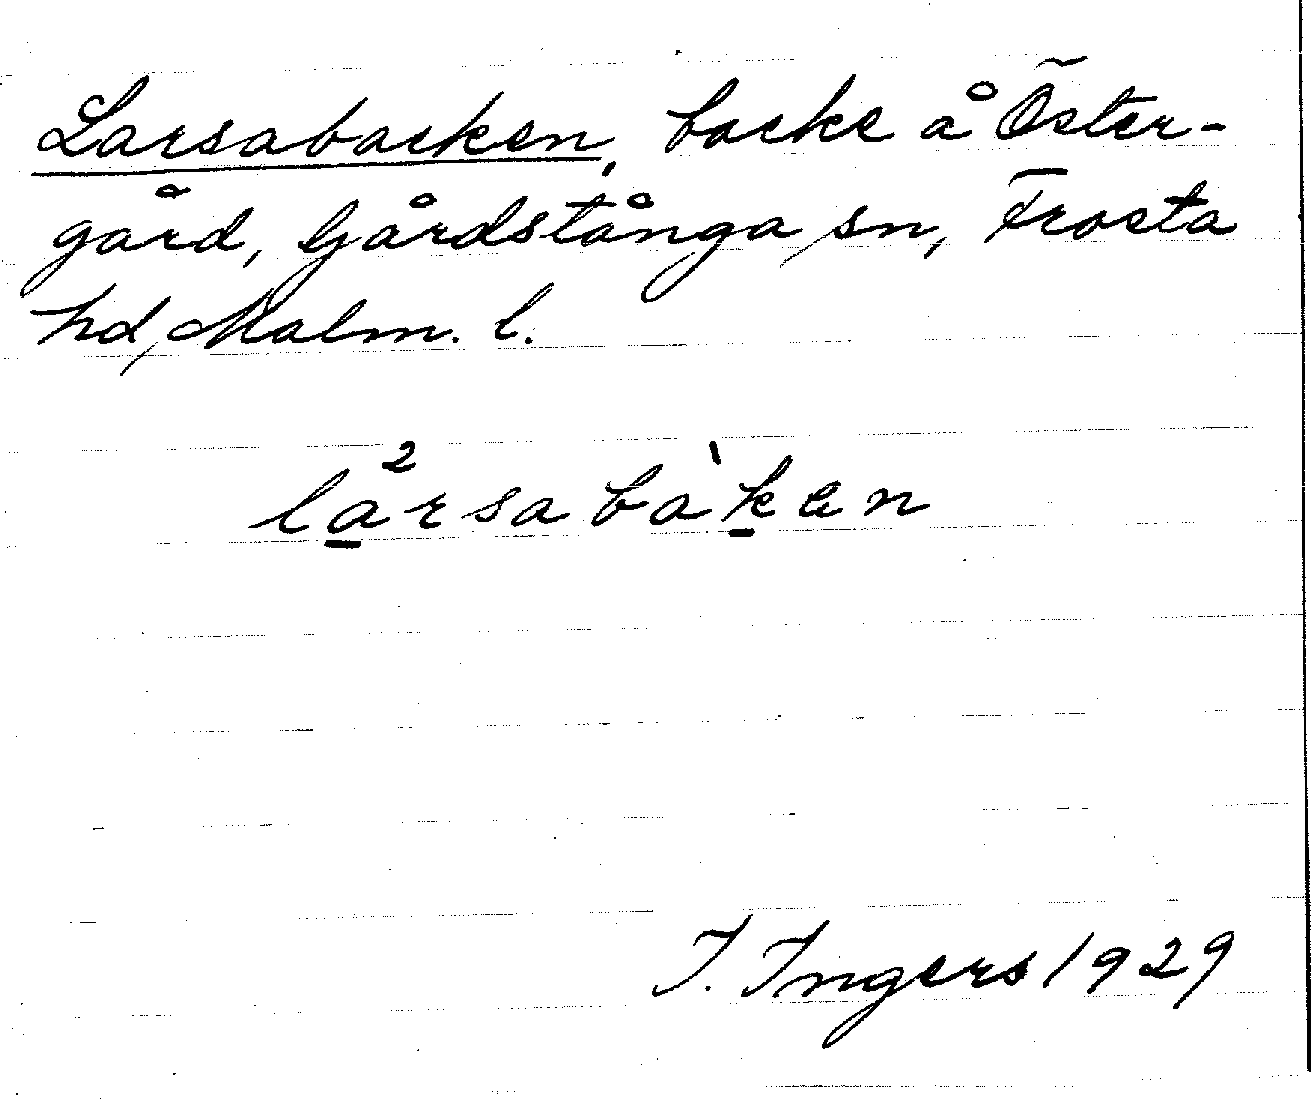 Larsabacken, backe å Öster-
gård, Gårdstånga sn, Frosta
hd, Malm. l.
la²rsabàken
I. Ingers 1929